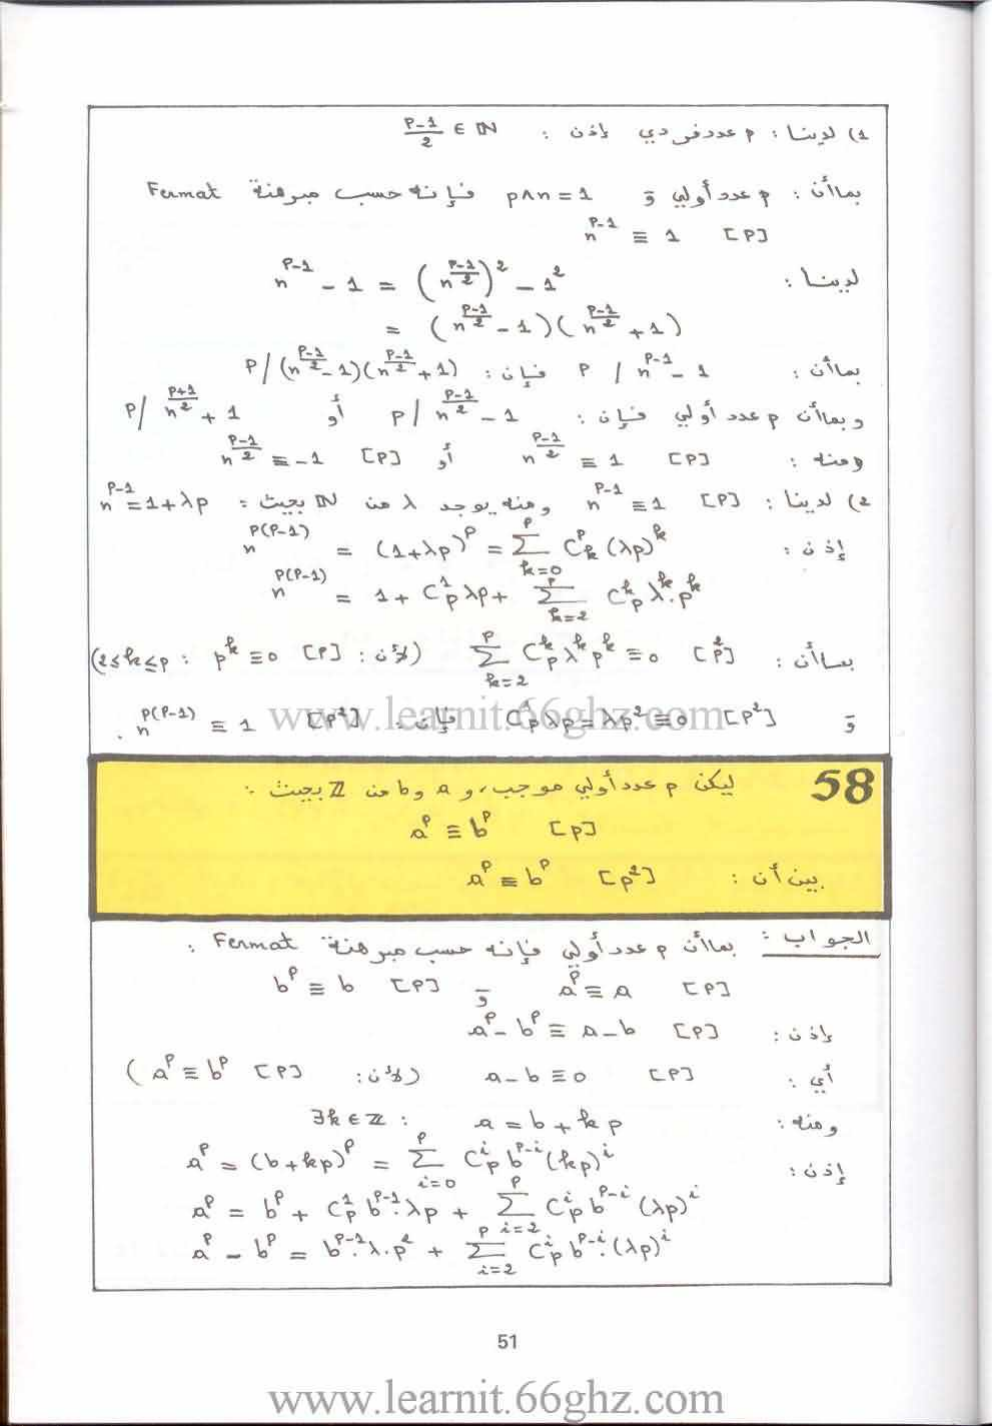 1) لدينا : p عدد فردي إذن : (p-1)/2 ∈ IN
بما أن : p عدد أولي وَ p∧n = 1 فإنه حسب مبرهنة Fermat
n^(p-1) ≡ 1 [p]
لدينا : n^(p-1) - 1 = (n^((p-1)/2))^2 - 1^2
= (n^((p-1)/2) - 1)(n^((p-1)/2) + 1)
بما أن : p / n^(p-1) - 1 فإن : p/(n^((p-1)/2) - 1)(n^((p-1)/2) + 1)
و بما أن p عدد أولي فإن : p / n^((p-1)/2) - 1 أو p/ n^((p+1)/2) + 1
ومنه : n^((p-1)/2) ≡ 1 [p] أو n^((p-1)/2) ≡ -1 [p]
2) لدينا : n^(p-1) ≡ 1 [p] ومنه يوجد λ من IN بحيث : n^(p-1) = 1+λp
إذن : n^(p(p-1)) = (1+λp)^p = Σ_{k=0}^{p} C_k^p (λp)^k
n^(p(p-1)) = 1 + C_p^1 λp + Σ_{k=2}^{p} C_p^k λ^k . p^k
بما أن : Σ_{k=2}^{p} C_p^k λ^k p^k ≡ 0 [p^2] (لأن : p^k ≡ 0 [p] : 2≤k≤p)
وَ C_p^1 λp = λp^2 ≡ 0 [p^2] فإن : n^(p(p-1)) ≡ 1 [p^2] .
www.learnit.66ghz.com
58 ليكن p عدد أولي موجب، و a و b من Z بحيث :
a^p ≡ b^p [p]
بين أن : a^p ≡ b^p [p^2]
الجواب : بما أن p عدد أولي فإنه حسب مبرهنة Fermat :
a^p ≡ a [p] وَ b^p ≡ b [p]
إذن : a^p - b^p ≡ a - b [p]
أي : a - b ≡ 0 [p] (لأن : a^p ≡ b^p [p])
ومنه : ∃k ∈ Z : a = b + kp
إذن : a^p = (b+kp)^p = Σ_{i=0}^{p} C_p^i b^(p-i) (kp)^i
a^p = b^p + C_p^1 b^(p-1) . λp + Σ_{i=2}^{p} C_p^i b^(p-i) (λp)^i
a^p - b^p = b^(p-1) . λ . p^2 + Σ_{i=2}^{p} C_p^i b^(p-i) . (λp)^i
51
www.learnit.66ghz.com